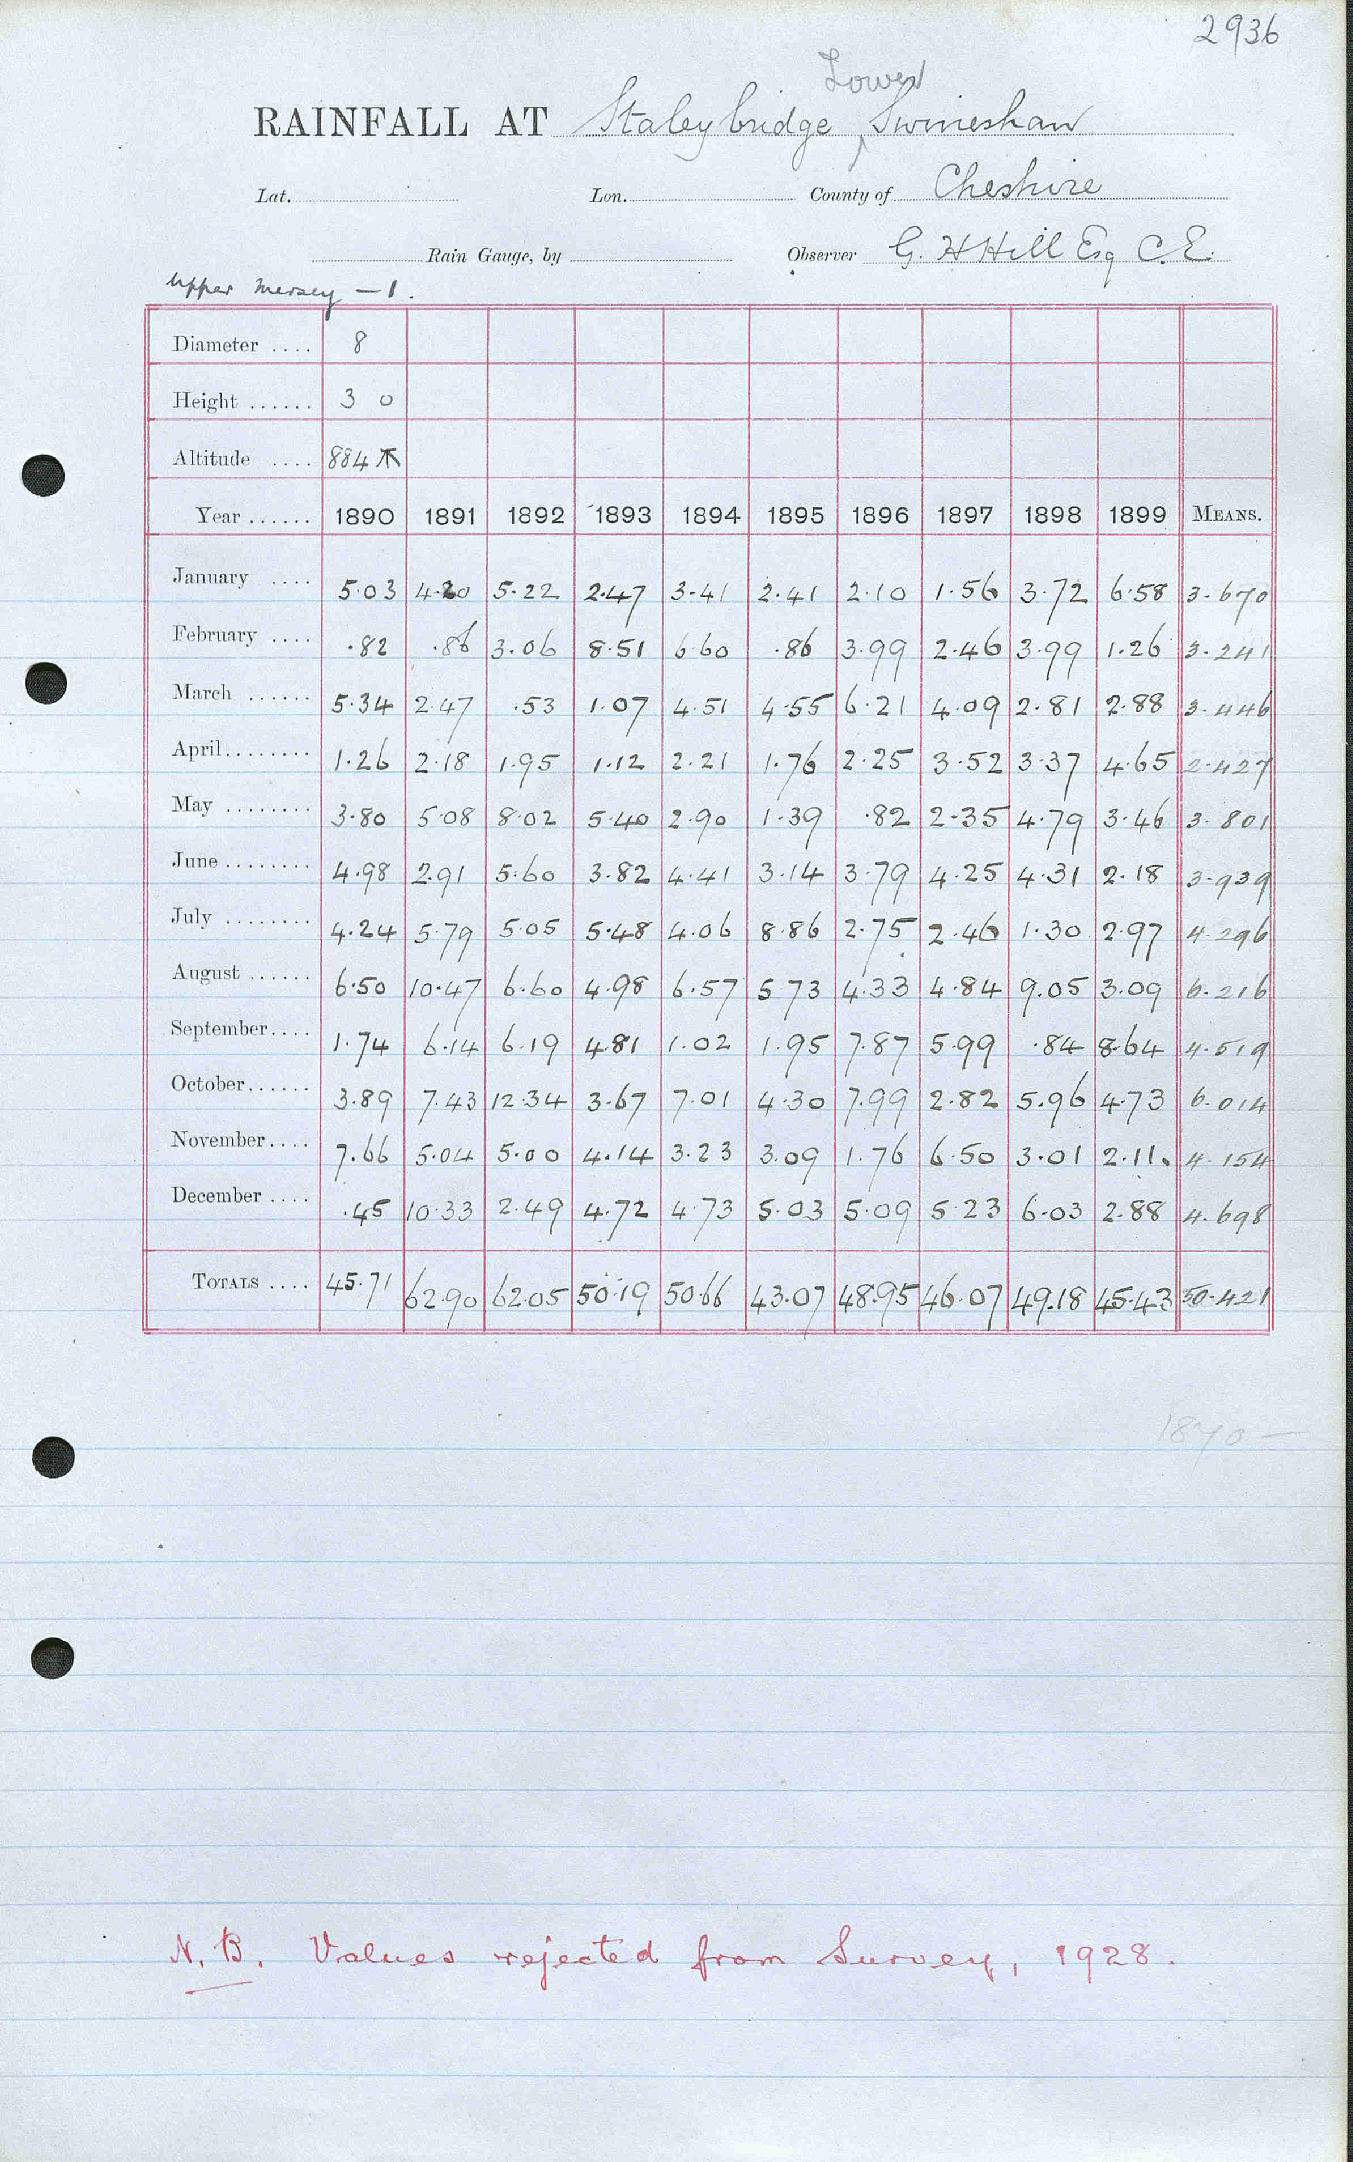 2936
Lower
RAINFALL AT Staleybridge Swineshaw
Lat. Lon. County of Cheshire
Rain Gauge, by Observer G. H Hill Esq C.E.
Upper Mersey — 1.
Diameter .... 8
Height ...... 3 0
Altitude .... 884
Year ...... 1890 1891 1892 1893 1894 1895 1896 1897 1898 1899 MEANS.
January .... 5.03 4.20 5.22 2.47 3.41 2.41 2.10 1.56 3.72 6.58 3.670
February .... .82 .86 3.06 8.51 6.60 .86 3.99 2.46 3.99 1.26 3.241
March ...... 5.34 2.47 .53 1.07 4.51 4.55 6.21 4.09 2.81 2.88 3.446
April........ 1.26 2.18 1.95 1.12 2.21 1.76 2.25 3.52 3.37 4.65 2.427
May ........ 3.80 5.08 8.02 5.40 2.90 1.39 .82 2.35 4.79 3.46 3.801
June ........ 4.98 2.91 5.60 3.82 4.41 3.14 3.79 4.25 4.31 2.18 3.939
July ........ 4.24 5.79 5.05 5.48 4.06 8.86 2.75 2.46 1.30 2.97 4.296
August ...... 6.50 10.47 6.60 4.98 6.57 5 73 4.33 4.84 9.05 3.09 6.216
September.... 1.74 6.14 6.19 4.81 1.02 1.95 7.87 5.99 .84 8.64 4.519
October...... 3.89 7.43 12.34 3.67 7.01 4.30 7.99 2.82 5.96 4.73 6.014
November.... 7.66 5.04 5.00 4.14 3.23 3.09 1.76 6.50 3.01 2.11. 4.154
December .... .45 10.33 2.49 4.72 4.73 5.03 5.09 5.23 6.03 2.88 4.698
TOTALS .... 45.71 62.90 62.05 50.19 50.66 43.07 48.95 46.07 49.18 45.43 50.421
1870 —
N.B. Values rejected from Survey, 1928.